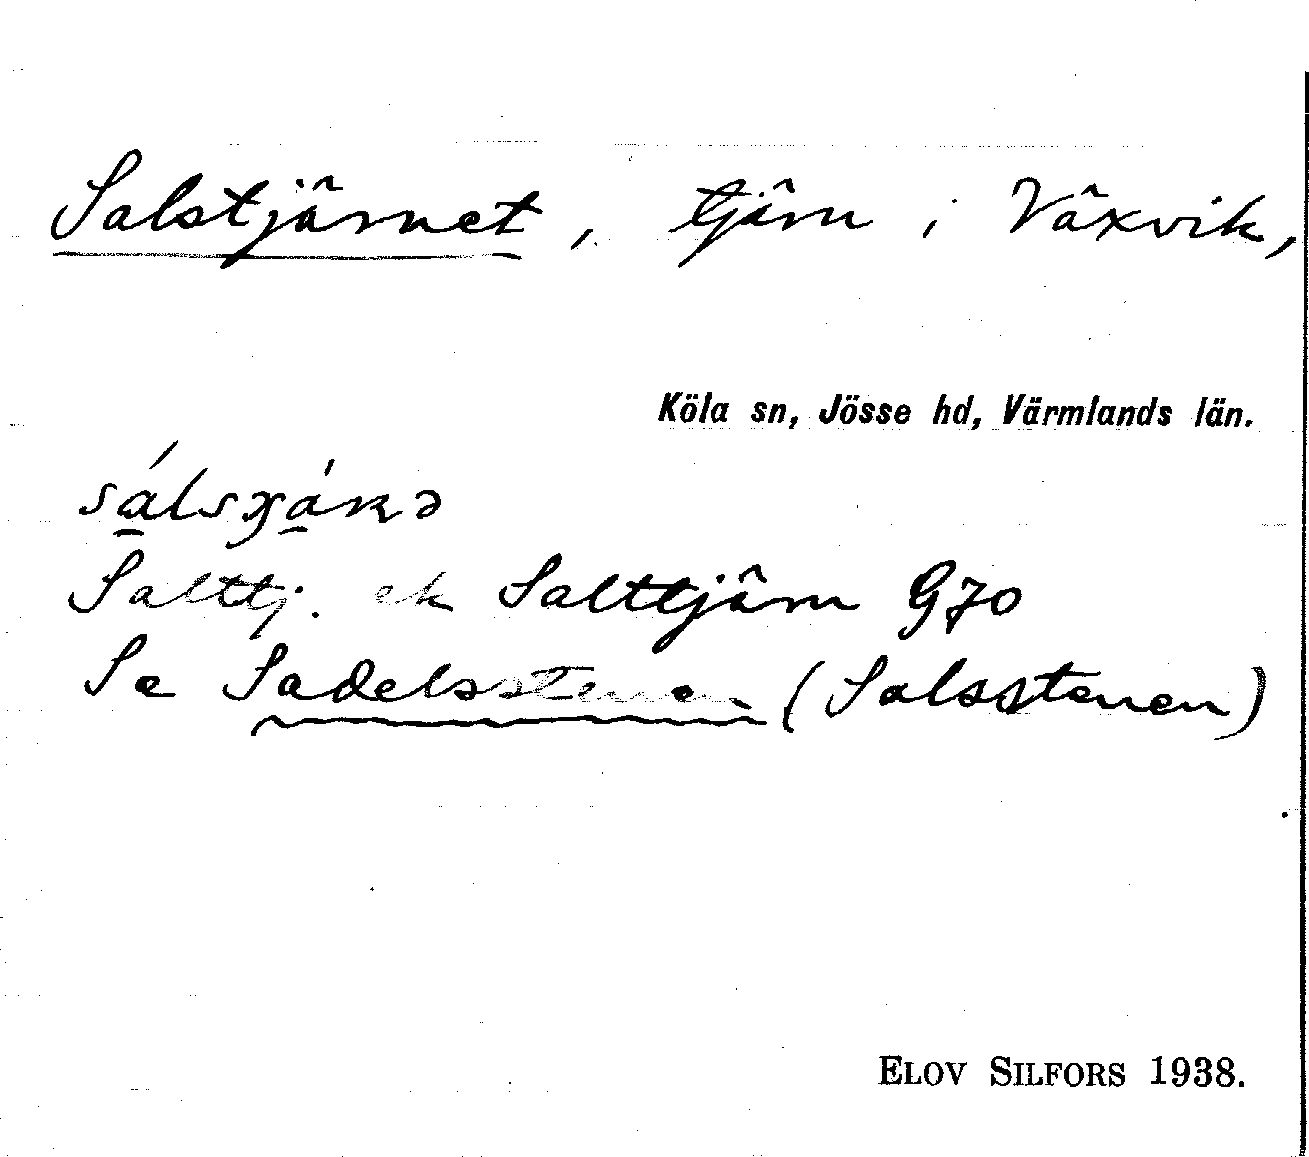 Salstjärnet, tjärn i Växvik,
Köla sn, Jösse hd, Värmlands län.
Salttj. ek Salttjärn G70
Se Sadelsstenen (Salsstenen)
ELOV SILFORS 1938.